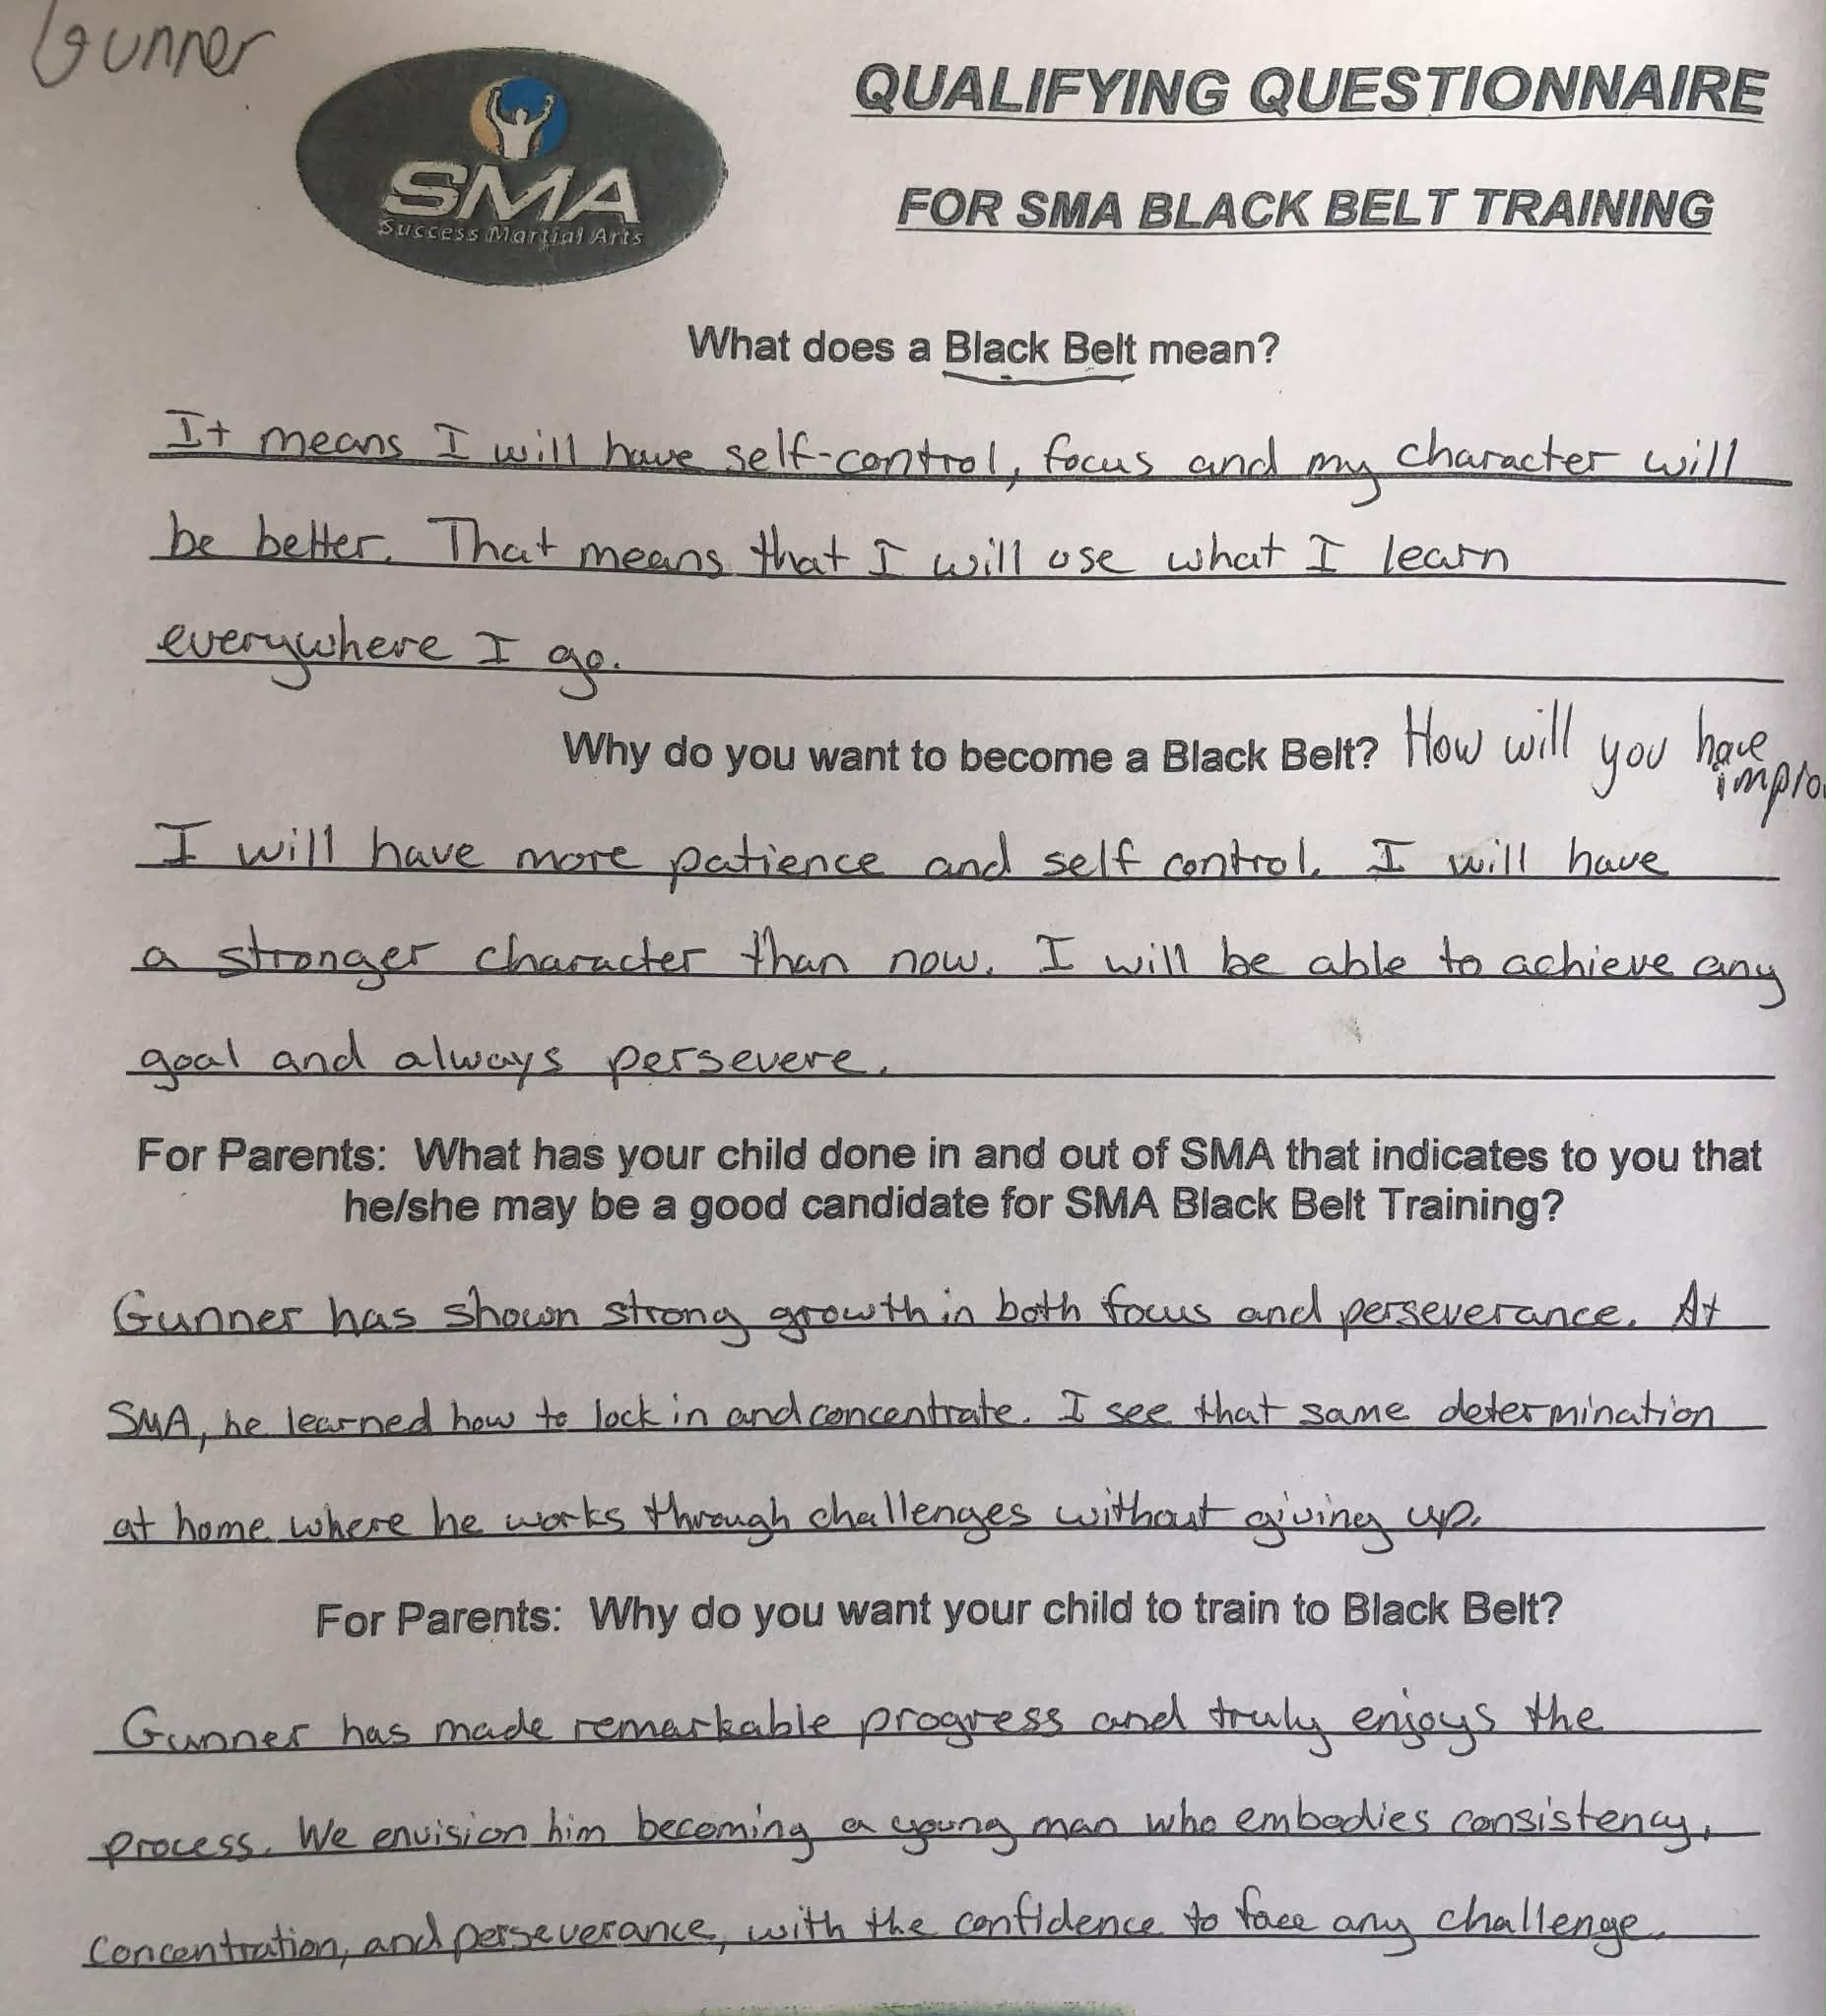 Gunner
SMA
Success Martial Arts
QUALIFYING QUESTIONNAIRE
FOR SMA BLACK BELT TRAINING
What does a Black Belt mean?
It means I will have self-control, focus and my character will
be better. That means that I will use what I learn
everywhere I go.
Why do you want to become a Black Belt? How will you have
impro
I will have more patience and self control. I will have
a stronger character than now. I will be able to achieve any
goal and always persevere.
For Parents: What has your child done in and out of SMA that indicates to you that
he/she may be a good candidate for SMA Black Belt Training?
Gunner has shown strong growth in both focus and perseverance. At
SMA, he learned how to lock in and concentrate. I see that same determination
at home where he works through challenges without giving up.
For Parents: Why do you want your child to train to Black Belt?
Gunner has made remarkable progress and truly enjoys the
process. We envision him becoming a young man who embodies consistency,
concentration, and perseverance, with the confidence to face any challenge.